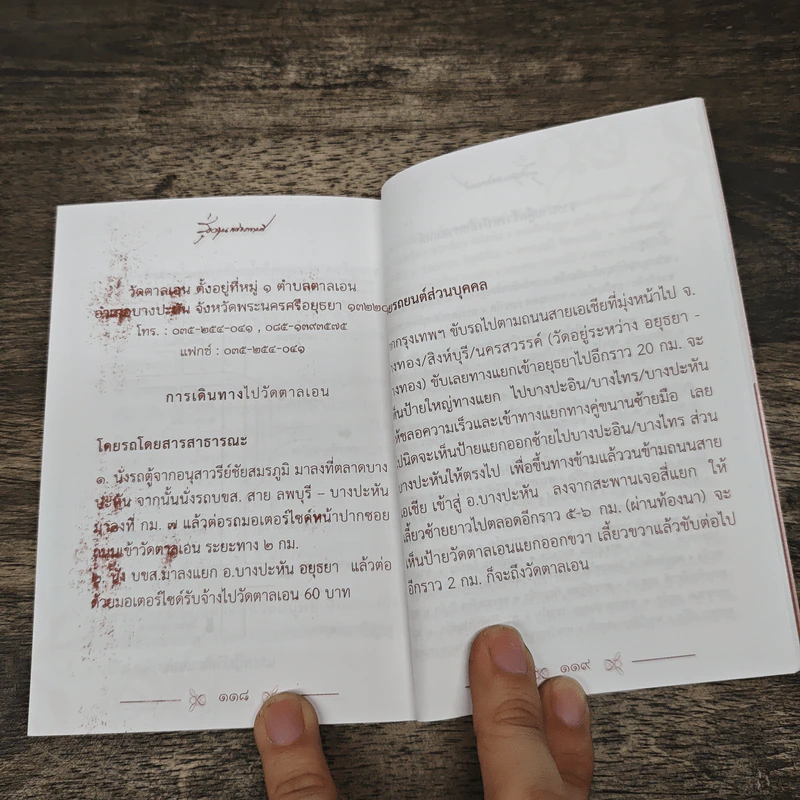 วัดตาลเอน ตั้งอยู่ที่หมู่ ๑ ตำบลตาลเอน
อำเภอบางปะหัน จังหวัดพระนครศรีอยุธยา ๑๓๒๒๐
โทร. : ๐๓๕-๒๕๔-๐๔๑ , ๐๘๕-๑๓๙๓๕๗๕
แฟกซ์ : ๐๓๕-๒๕๔-๐๔๑
การเดินทางไปวัดตาลเอน
โดยรถโดยสารสาธารณะ
๑. นั่งรถตู้จากอนุสาวรีย์ชัยสมรภูมิ มาลงที่ตลาดบาง
ปะหัน จากนั้นนั่งรถบขส. สาย ลพบุรี – บางปะหัน
มาลงที่ กม. ๗ แล้วต่อรถมอเตอร์ไซค์หน้าปากซอย
ถนนเข้าวัดตาลเอน ระยะทาง ๒ กม.
๒. นั่ง บขส.มาลงแยก อ.บางปะหัน อยุธยา แล้วต่อ
ด้วยมอเตอร์ไซด์รับจ้างไปวัดตาลเอน 60 บาท
๑๑๘
รถยนต์ส่วนบุคคล
กรุงเทพฯ ขับรถไปตามถนนสายเอเชียที่มุ่งหน้าไป จ.
งทอง/สิงห์บุรี/นครสวรรค์ (วัดอยู่ระหว่าง อยุธยา -
งทอง) ขับเลยทางแยกเข้าอยุธยาไปอีกราว 20 กม. จะ
ห็นป้ายใหญ่ทางแยก ไปบางปะอิน/บางไทร/บางปะหัน
ห้ชลอความเร็วและเข้าทางแยกทางคู่ขนานซ้ายมือ เลย
ปนิดจะเห็นป้ายแยกออกซ้ายไปบางปะอิน/บางไทร ส่วน
บางปะหันให้ตรงไป เพื่อขึ้นทางข้ามแล้ววนข้ามถนนสาย
เอเชีย เข้าสู่ อ.บางปะหัน ลงจากสะพานเจอสี่แยก ให้
เลี้ยวซ้ายยาวไปตลอดอีกราว ๕-๖ กม. (ผ่านท้องนา) จะ
เห็นป้ายวัดตาลเอนแยกออกขวา เลี้ยวขวาแล้วขับต่อไป
อีกราว 2 กม. ก็จะถึงวัดตาลเอน
๑๑๙